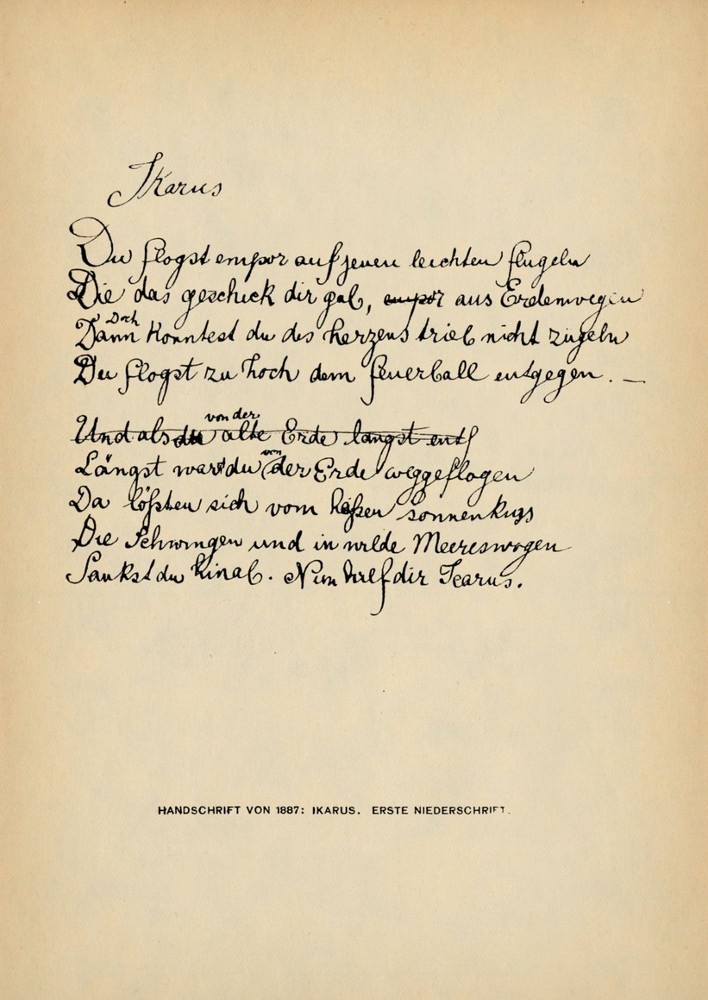 Ikarus
Du flogst empor auf jenen leichten flügeln
Die das geschick dir gab, empor aus Erdenwegen
Doch
Dann konntest du des herzens trieb nicht zügeln
Du flogst zu hoch dem feuerball entgegen. —
von der
Und als du alte Erde langst entf
von
Längst warst du der Erde weggeflogen
Da lößten sich vom heßen sonnenkuss
Die Schwingen und in wilde Meereswogen
Sankst du hinab. Nun hilf dir Icarus.
HANDSCHRIFT VON 1887: IKARUS. ERSTE NIEDERSCHRIFT.